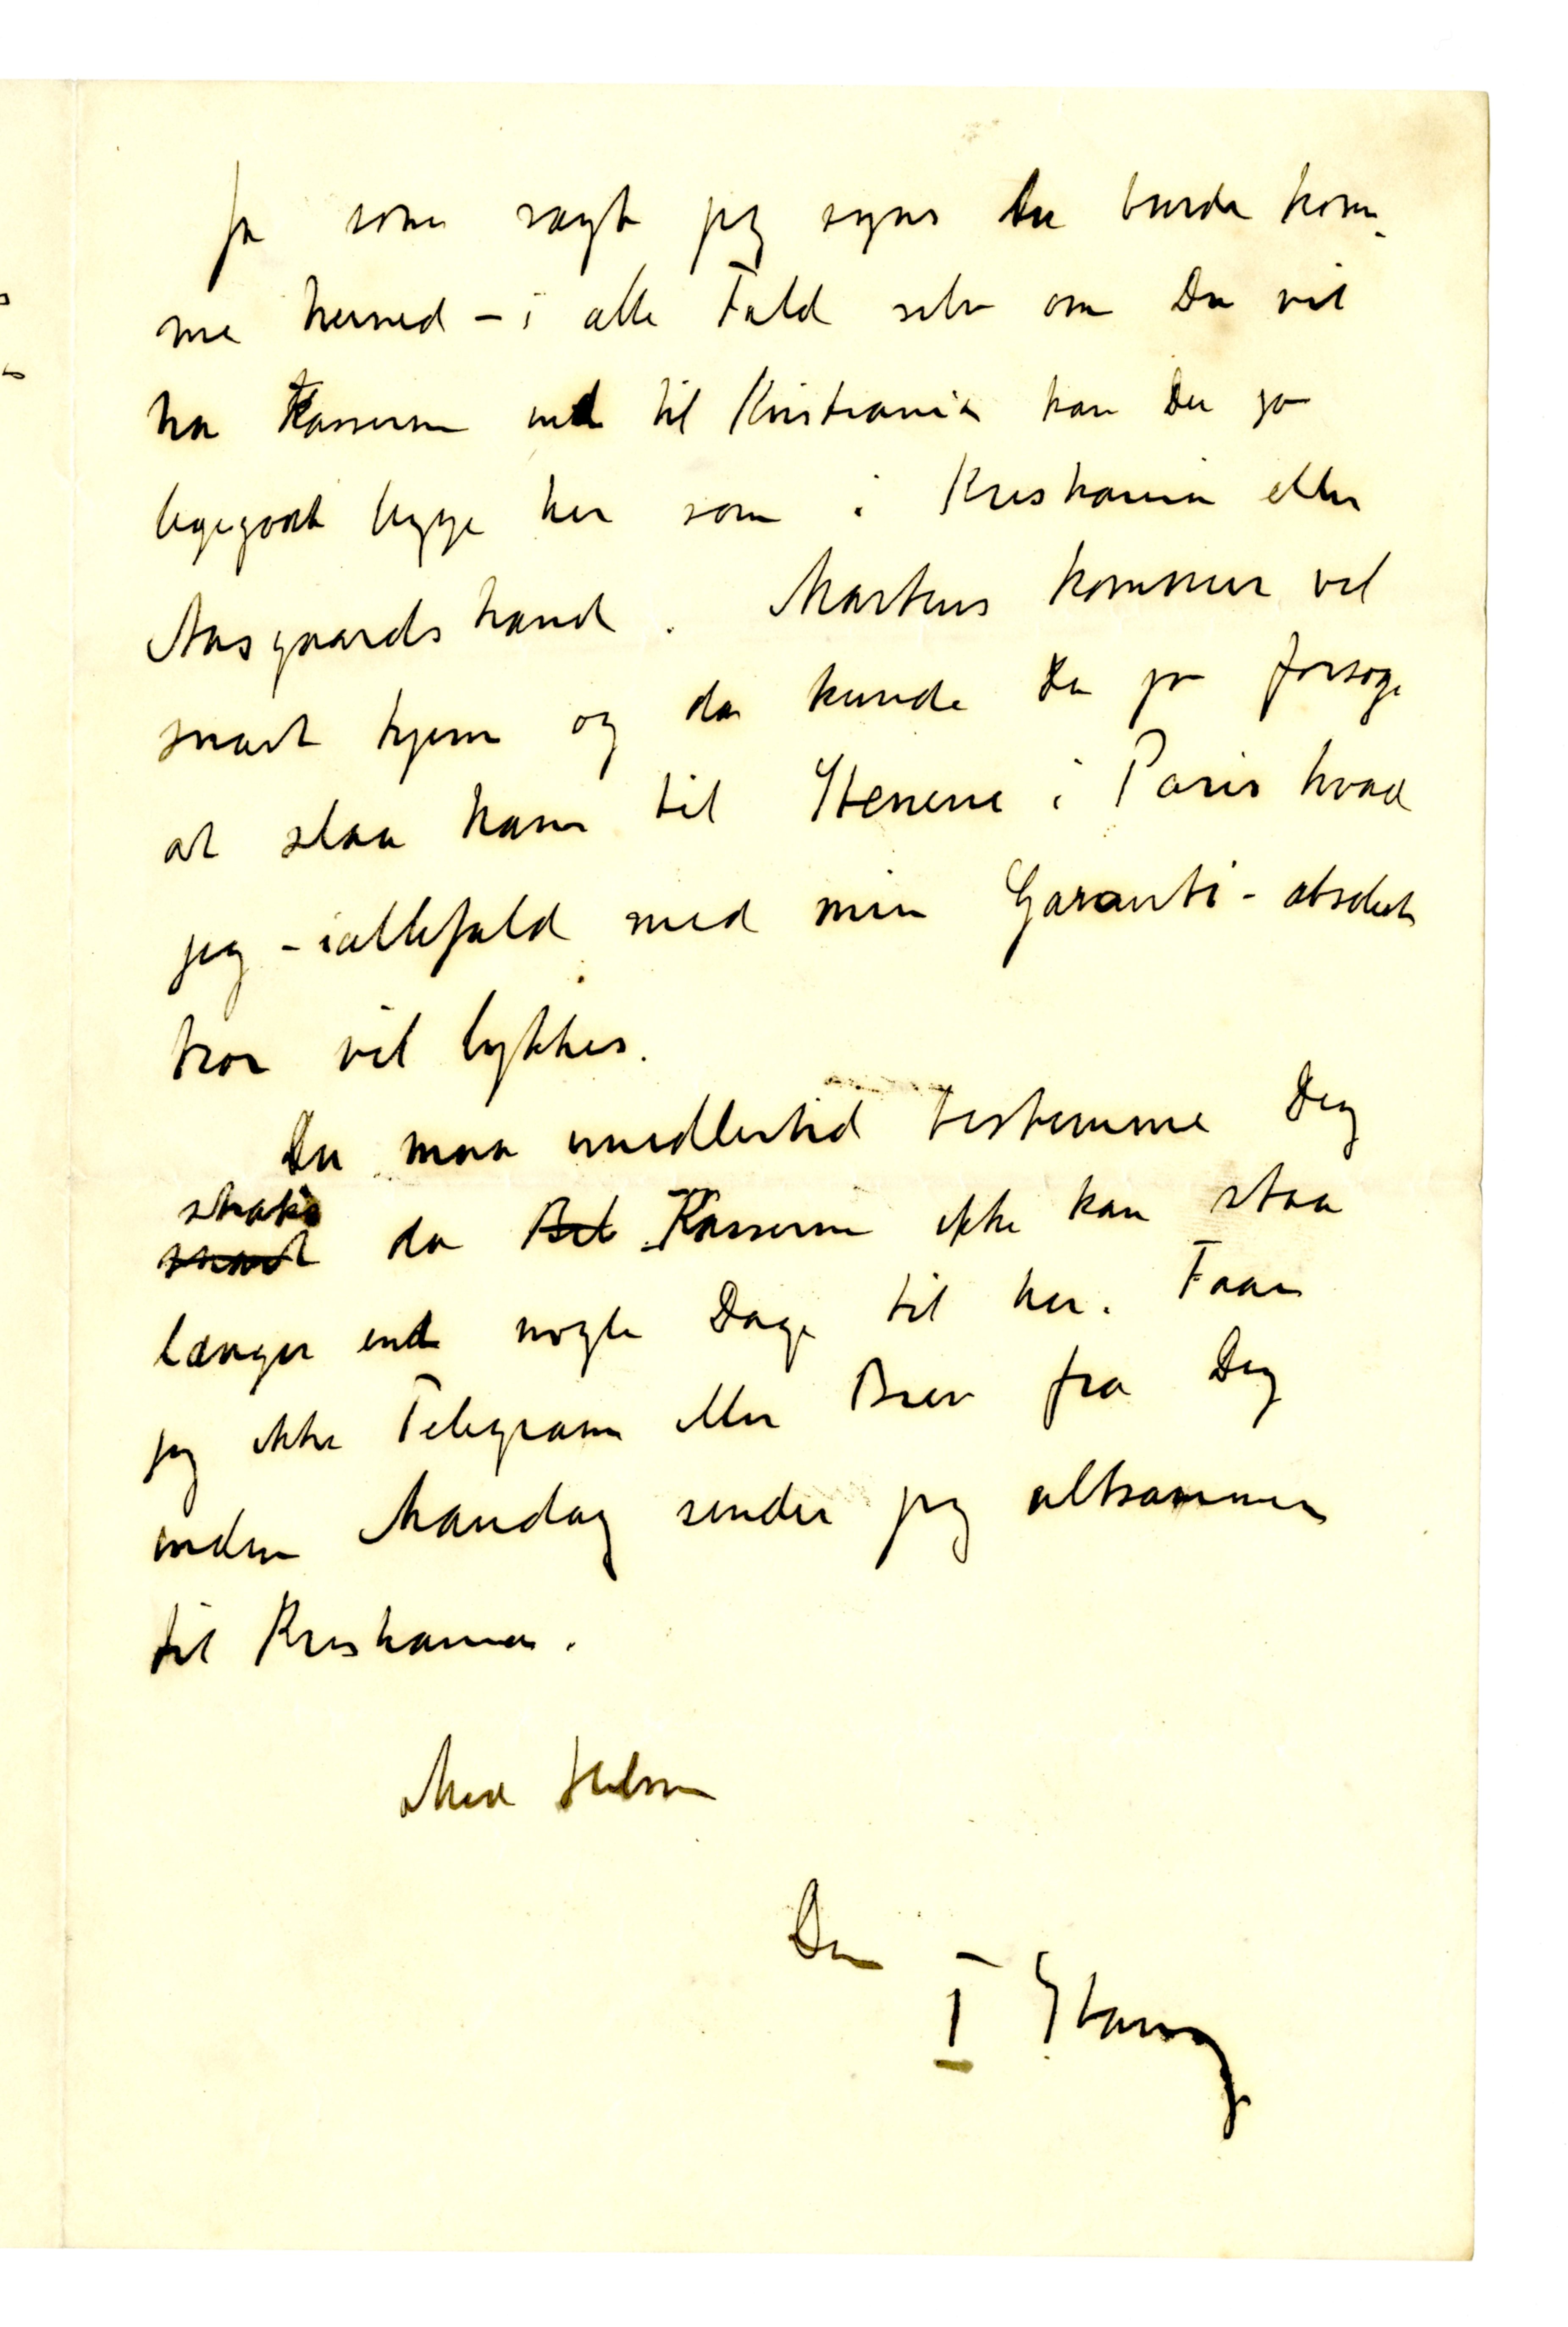 Ja som sagt jeg synes Du burde kom-
me herned – i alle Fald selv om Du vil
ha Kasserne ind til Kristiania kan Du jo
ligegodt ligge her som i Kristiania eller
Aasgaardstrand. Markus kommer vel
snart hjem og da kunde Du jo forsøge
at slaa ham til Stenene i Paris hvad
jeg – iallefald med min Garanti – absolut
tror vil lykkes.
Du maa imidlertid bestemme Dig
straks
snart da Bil Kasserne ikke kan staa
længer end nogle Dage til her. Faar
jeg ikke Telegram eller Brev fra Dig
inden Mandag sender jeg altsammen
til Kristiania.
Med Hilsen
Din
Stang